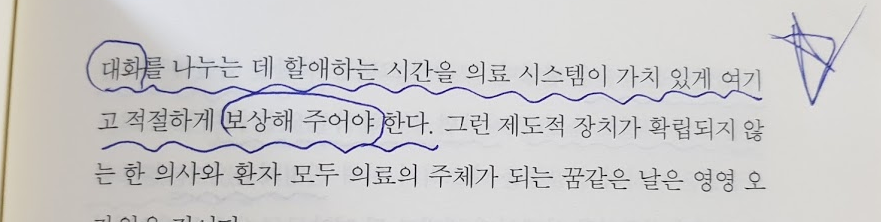 대화를 나누는 데 할애하는 시간을 의료 시스템이 가치 있게 여기
고 적절하게 보상해 주어야 한다. 그런 제도적 장치가 확립되지 않
는 한 의사와 환자 모두 의료의 주체가 되는 꿈같은 날은 영영 오